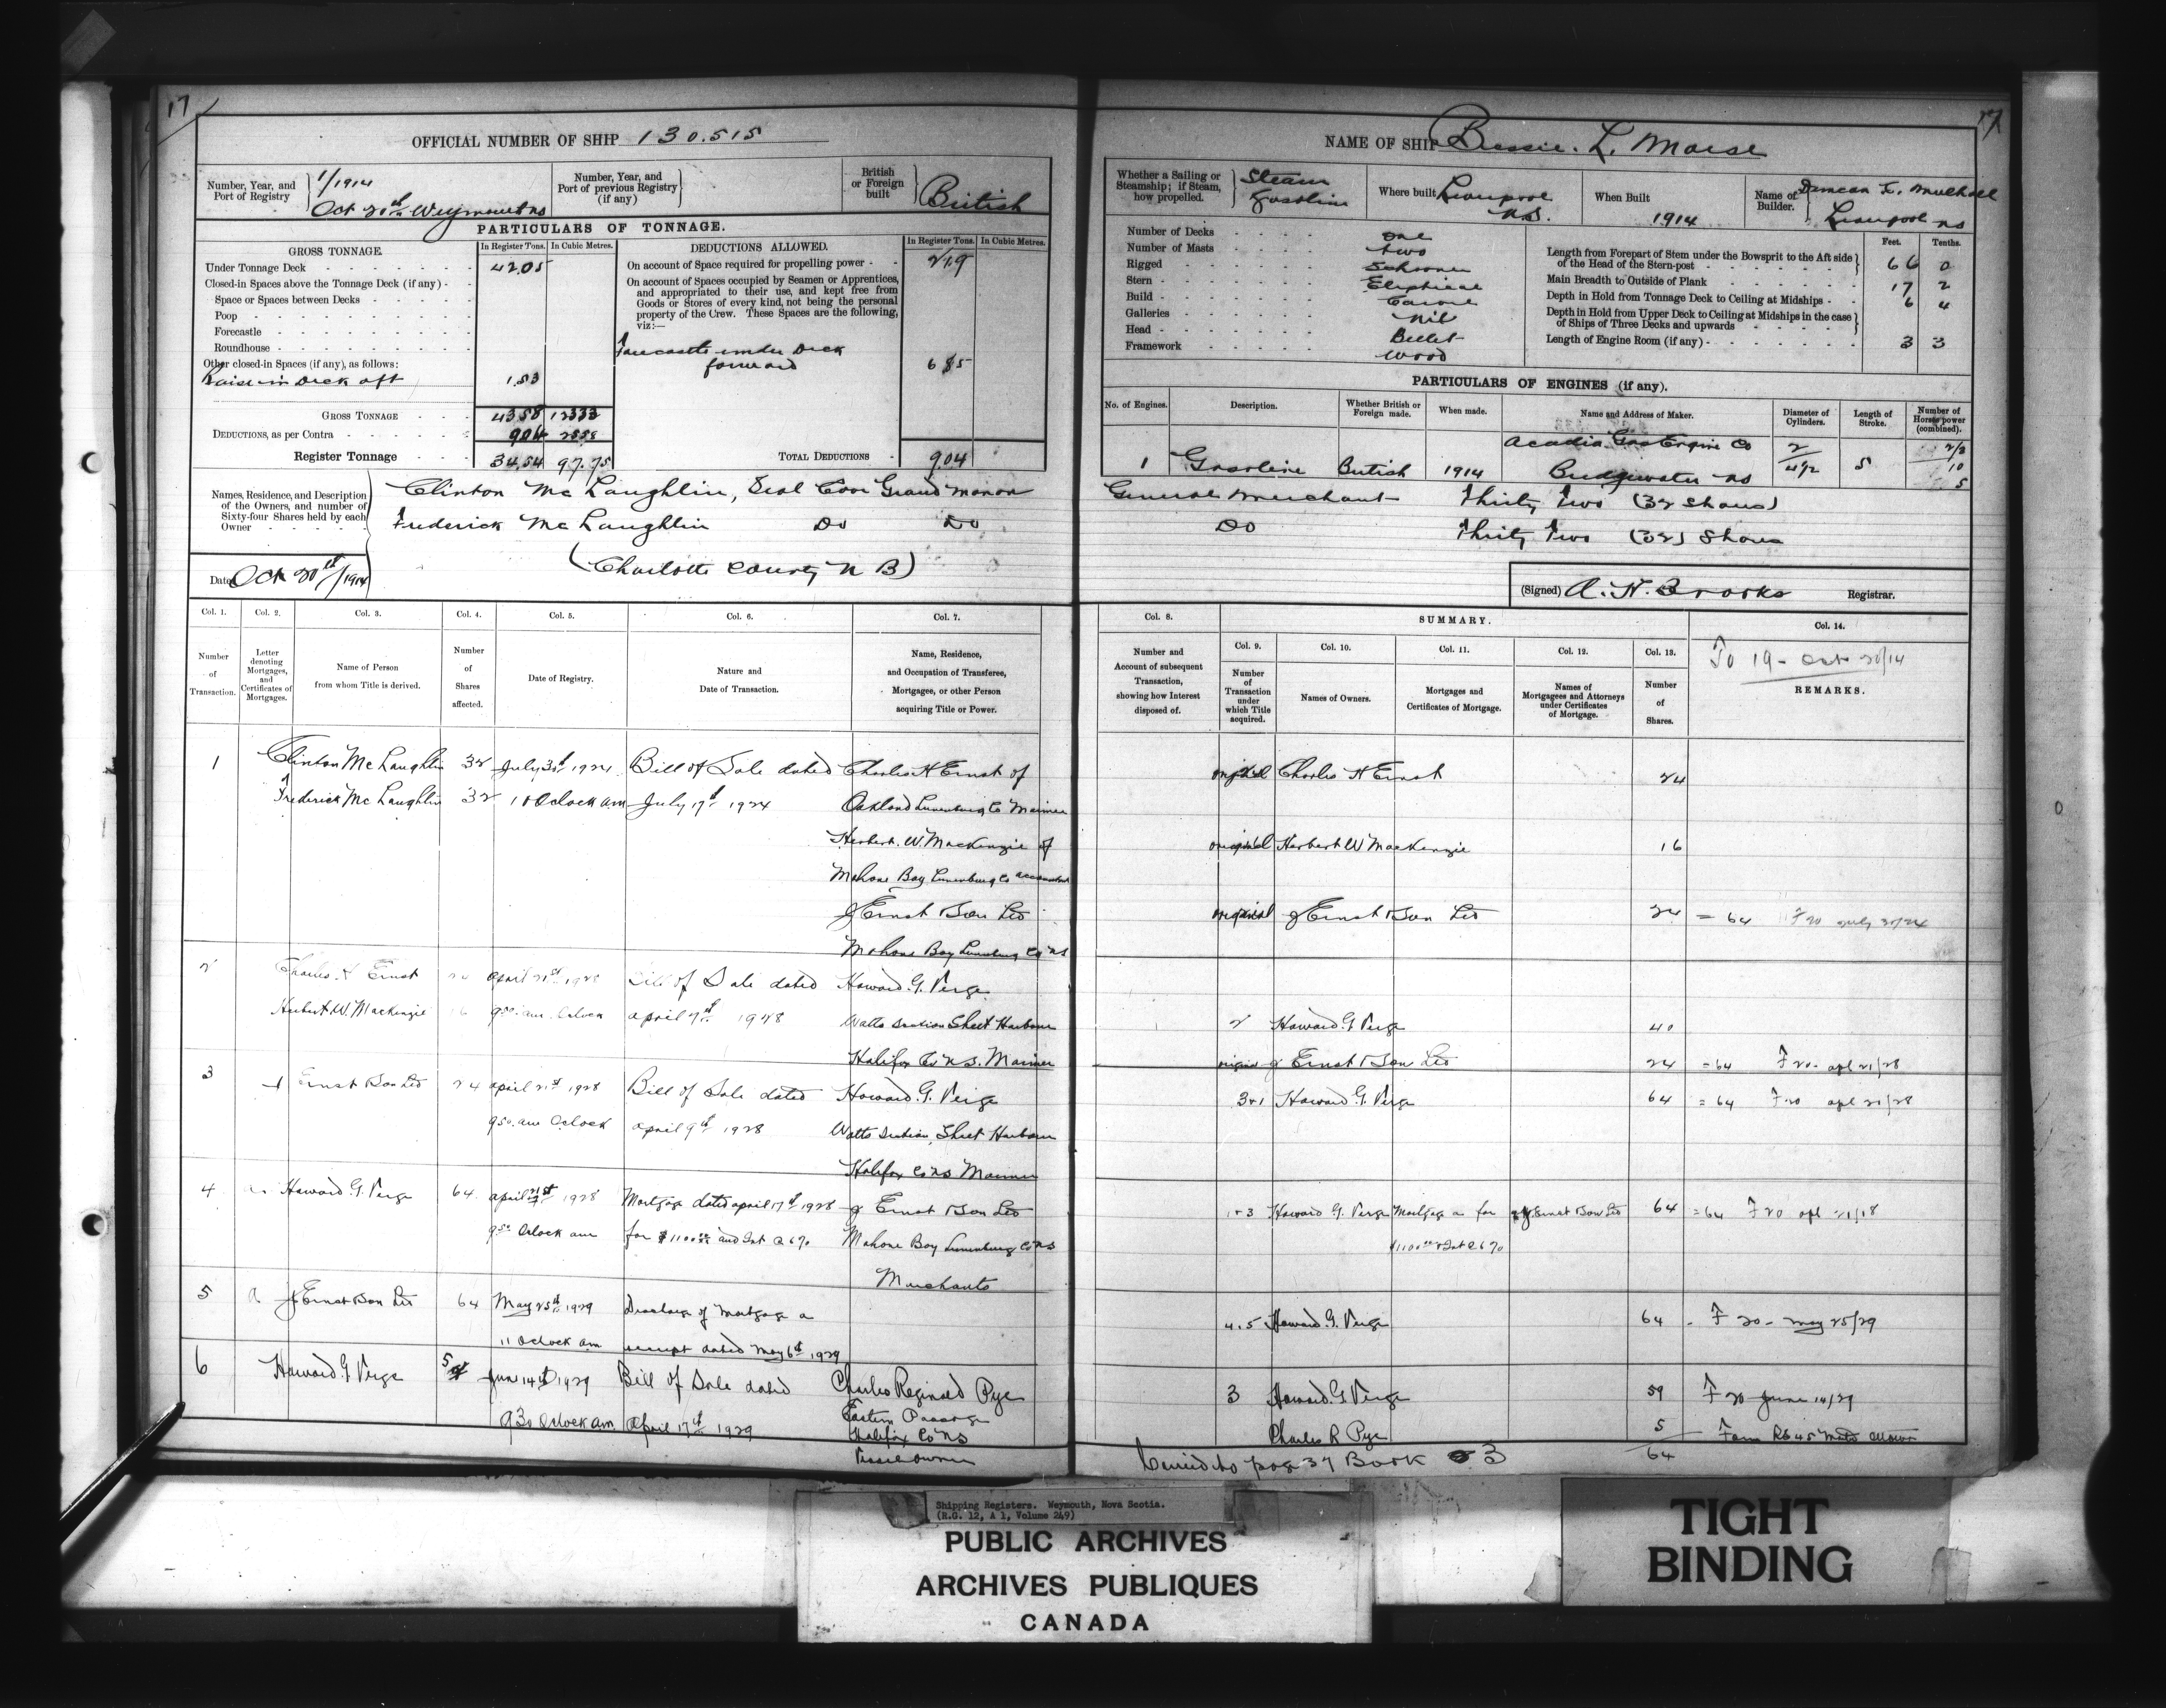 17
17
OFFICIAL NUMBER OF SHIP 130.515
Number, Year, and Port of Registry
1/1914
Oct 20th Weymouth NS
Number, Year, and Port of previous Registry (if any)
British or Foreign built
British
PARTICULARS OF TONNAGE.
GROSS TONNAGE.
In Register Tons. In Cubic Metres.
Under Tonnage Deck 42.05
Closed-in Spaces above the Tonnage Deck (if any)
Space or Spaces between Decks
Poop
Forecastle
Roundhouse
Other closed-in Spaces (if any), as follows:
Raise in Deck aft 1.53
GROSS TONNAGE 43.58 123.33
DEDUCTIONS, as per Contra 9.04 25.58
Register Tonnage 34.54 97.75
DEDUCTIONS ALLOWED.
In Register Tons. In Cubic Metres.
On account of Space required for propelling power 2.19
On account of Spaces occupied by Seamen or Apprentices,
and appropriated to their use, and kept free from
Goods or Stores of every kind, not being the personal
property of the Crew. These Spaces are the following,
viz:—
Forecastle under Deck
forward 6.85
TOTAL DEDUCTIONS 9.04
Names, Residence, and Description of the Owners, and number of Sixty-four Shares held by each Owner
Clinton McLaughlin, Seal Cove Grand Manan
Frederick McLaughlin Do Do
(Charlotte County N B)
Date Oct 20th/1914
NAME OF SHIP Bessie. L. Morse
Whether a Sailing or Steamship; if Steam, how propelled.
Steam
Gasoline
Where built
Liverpool
N.S.
When Built
1914
Name of Builder.
Duncan F. Mulhall
Liverpool NS
Number of Decks One
Number of Masts two
Rigged Schooner
Stern Eliptical
Build Carvel
Galleries Nil
Head Billet
Framework Wood
Feet. Tenths.
Length from Forepart of Stem under the Bowsprit to the Aft side of the Head of the Stern-post 66 0
Main Breadth to Outside of Plank 17 2
Depth in Hold from Tonnage Deck to Ceiling at Midships 6 4
Depth in Hold from Upper Deck to Ceiling at Midships in the case of Ships of Three Decks and upwards
Length of Engine Room (if any) 3 3
PARTICULARS OF ENGINES (if any).
No. of Engines. Description. Whether British or Foreign made. When made. Name and Address of Maker. Diameter of Cylinders. Length of Stroke. Number of Horse power (combined).
Acadia Gas Engine Co 2
1 Gasoline British 1914 Bridgewater NS 4 1/2 5 10
General Merchant Thirty Two (32 Shares)
Do Thirty Two (32) Shares
(Signed) A. H. Brooks Registrar.
Col. 1. Col. 2. Col. 3. Col. 4. Col. 5. Col. 6. Col. 7.
Number of Transaction.
Letter denoting Mortgages, and Certificates of Mortgages.
Name of Person from whom Title is derived.
Number of Shares affected.
Date of Registry.
Nature and Date of Transaction.
Name, Residence, and Occupation of Transferee, Mortgagee, or other Person acquiring Title or Power.
Col. 8.
Number and Account of subsequent Transaction, showing how Interest disposed of.
SUMMARY.
Col. 9. Col. 10. Col. 11. Col. 12. Col. 13. Col. 14.
Number of Transaction under which Title acquired.
Names of Owners.
Mortgages and Certificates of Mortgage.
Names of Mortgagees and Attorneys under Certificates of Mortgage.
Number of Shares.
To 19 - Oct 20/14
REMARKS.
1 Clinton McLaughlin 32 July 30th 1924 Bill of Sale dated Charles H Ernst of
Frederick McLaughlin 32 10 Oclock am July 17th 1924 Oakland Lunenburg Co Mariner
Herbert. W. MacKenzie of
Mahone Bay Lunenburg Co accountant
J Ernst & Son Ltd
Mahone Bay Lunenburg Co NS
original Charles H Ernst 24
original Herbert W MacKenzie 16
original J Ernst & Son Ltd 24 = 64
2 Charles. H Ernst 24 april 21st 1928 Bill of Sale dated Howard. G. Verge
Herbert. W. MacKenzie 16 9.50 am Oclock april 7th 1928 Watts Section Sheet Harbour
Halifax Co NS. Mariner
2 Howard. G Verge 40
original J Ernst & Son Ltd 24 = 64 F 20. apl 21/28
3 J Ernst & Son Ltd 24 april 21st 1928 Bill of Sale dated Howard. G. Verge
9.50. am Oclock april 9th 1928 Watts Section, Sheet Harbour
Halifax Co NS Mariner
Howard. G. Verge 64 = 64 F 20 apl 21/28
4 a Howard. G. Verge 64 april 21st 1928 Mortgage dated april 17th 1928 J Ernst & Son Ltd
Oclock am for $1100.00 and Int @ 6% Mahone Bay Lunenburg Co NS
Merchants
Howard G. Verge Mortgage a for J. Ernst & Son Ltd 64 = 64 F 20
$1100.00 & Int @ 6%
5 a J Ernst & Son Ltd 64 May 25th 1929 Discharge of Mortgage a
11 Oclock am receipt dated May 6th 1929
4.5 Howard. G. Verge 64 F 20 - May 25/29
6 Howard. G Verge 5 June 14th 1929 Bill of Sale dated Charles Reginald Pye
9.30 Oclock am april 17th 1929 Eastern Passage
Halifax Co NS
Vessel owner
3 Howard G Verge 59 F 20 June 14/29
Charles R Pye 5
64
Carried to page 37 Book 3
Shipping Registers. Weymouth, Nova Scotia.
(R.G. 12, A 1, Volume 249)
PUBLIC ARCHIVES
ARCHIVES PUBLIQUES
CANADA
TIGHT
BINDING